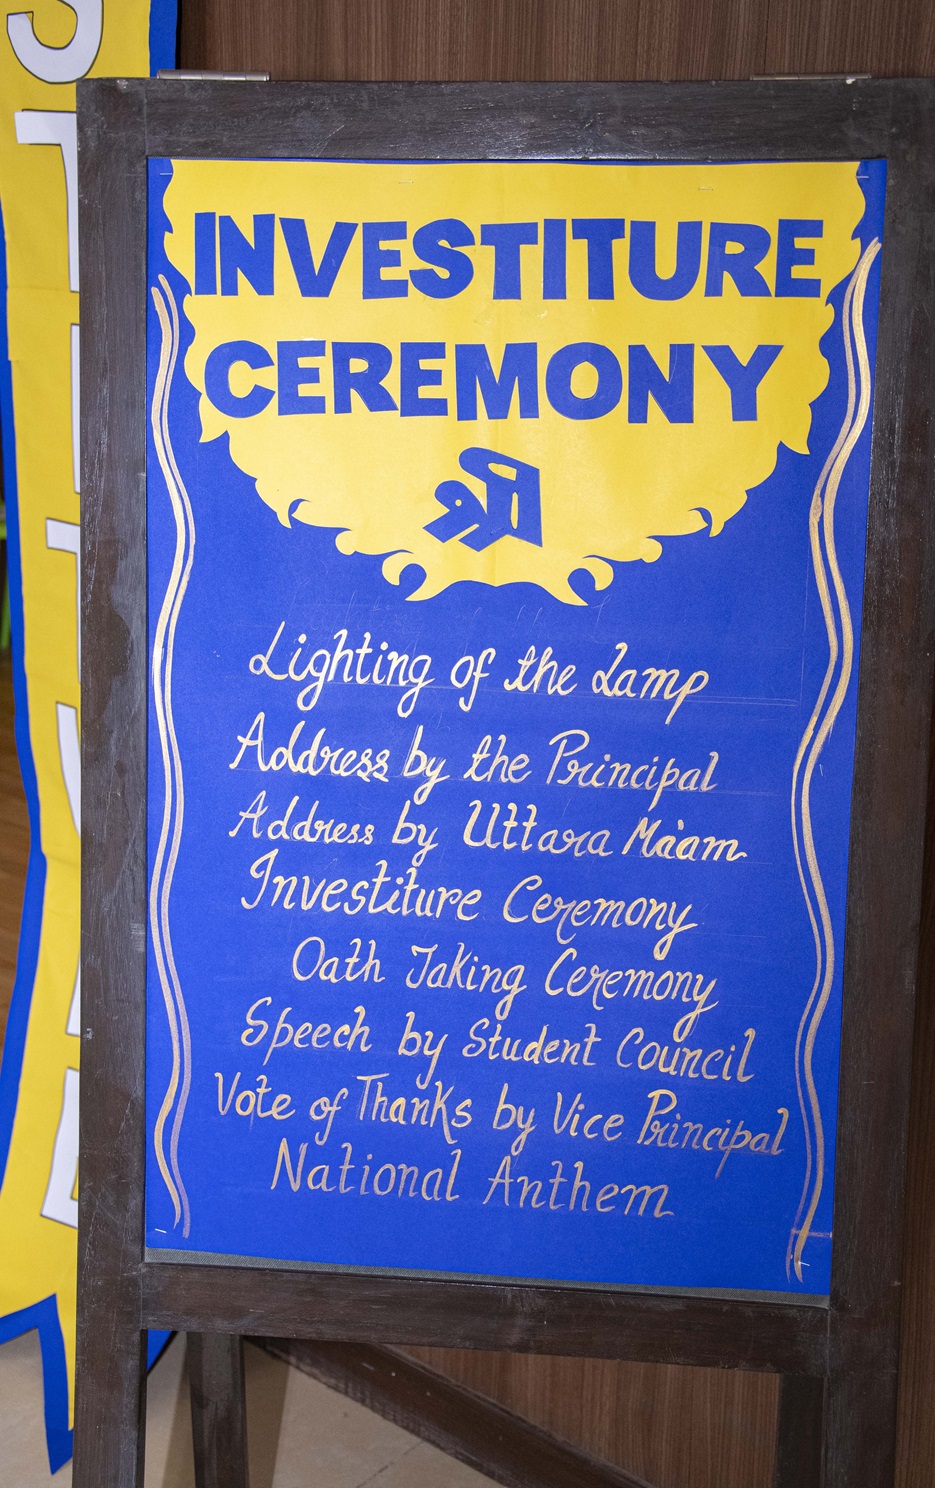 INVESTITURE
CEREMONY
श्री
Lighting of the Lamp
Address by the Principal
Address by Uttara Ma'am
Investiture Ceremony
Oath Taking Ceremony
Speech by Student Council
Vote of Thanks by Vice Principal
National Anthem